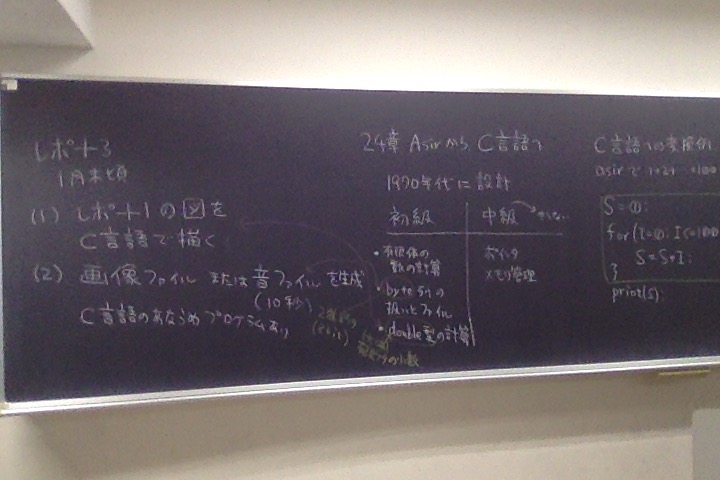 レポート3
1月末頃
(1) レポート1の図を
C言語で描く
(2) 画像ファイル または 音ファイル を生成
(10秒)
C言語のあなうめプログラムあり
24章 Asirから C言語へ
1970年代に設計
初級
中級
・有限体の
数の計算
・byte列の
扱いとファイル
・double型の計算
ポインタ
メモリ管理
C言語への変換例
asirで 1+2+ … +100
S=0;
for(I=0; I<=100;
S=S+I;
}
print(S);